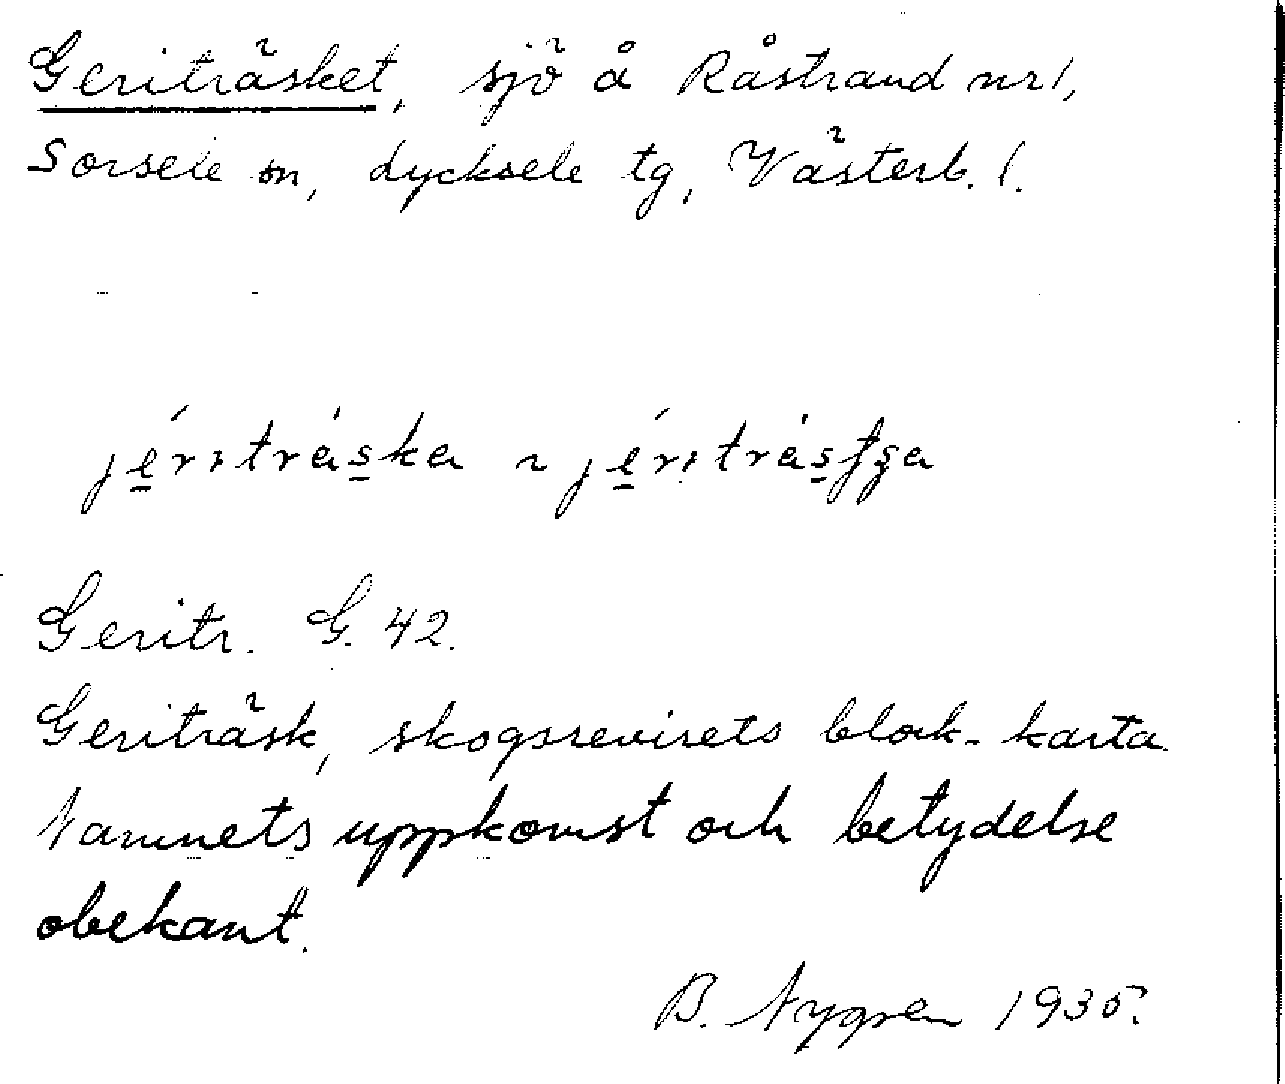 Geriträsket, sjö å Råstrand nr 1,
Sorsele sn, Lycksele tg, Västerb. l.
jḙ́ritrás̱ka ~ jḙ́ritrás̱tʃa
Geritr. G. 42.
Geriträsk, skogsrevirets block-karta.
Namnets uppkomst och betydelse
obekant.
B. Nygren 1935.